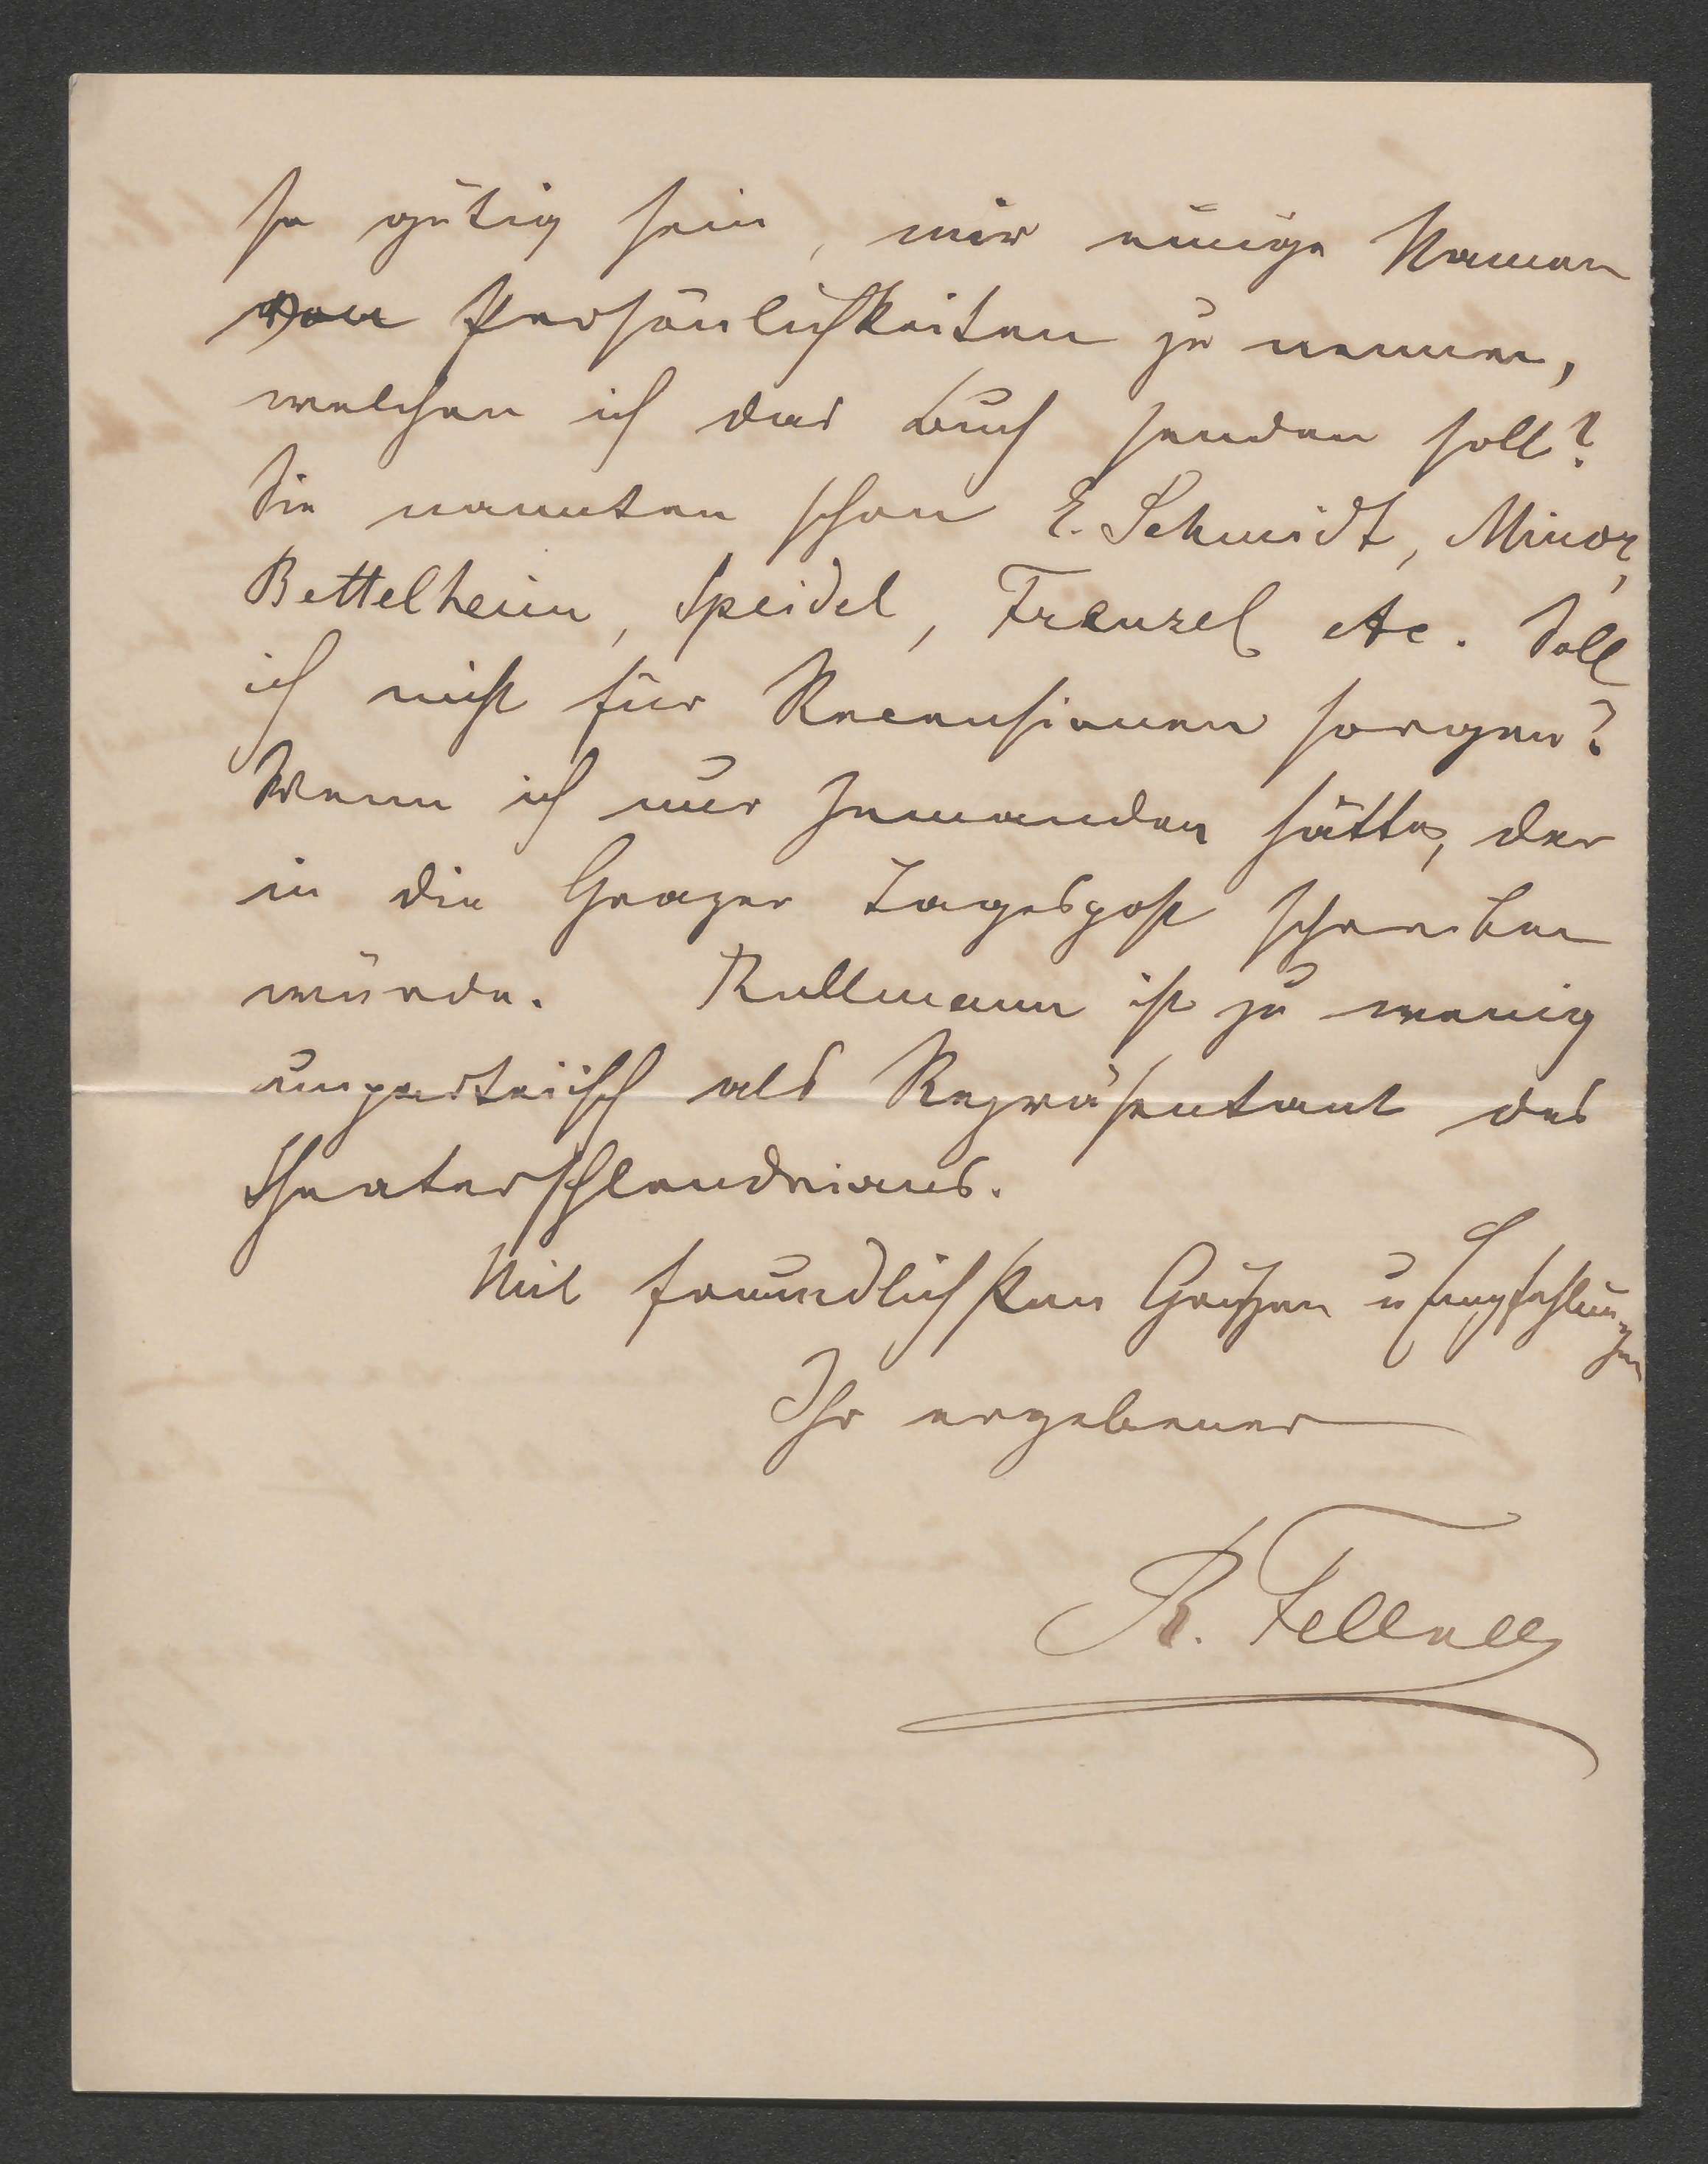 so gütig sein, mir einige Namen
von Persönlichkeiten zu nennen,
welchen ich das Buch senden soll?
Sie nannten schon E. Schmidt, Minor,
Bettelheim, Speidel, Frenzel etc. Soll
ich nicht für Recensionen sorgen?
Wenn ich nur Jemanden hätte, der
in die Grazer Tagespost schreiben
würde. Rullmann ist zu wenig
unparteiisch als Repräsentant des
Theaterschlendrians.
Mit freundlichsten Grüßen u Empfehlungen
Ihr ergebener
R. Fellner